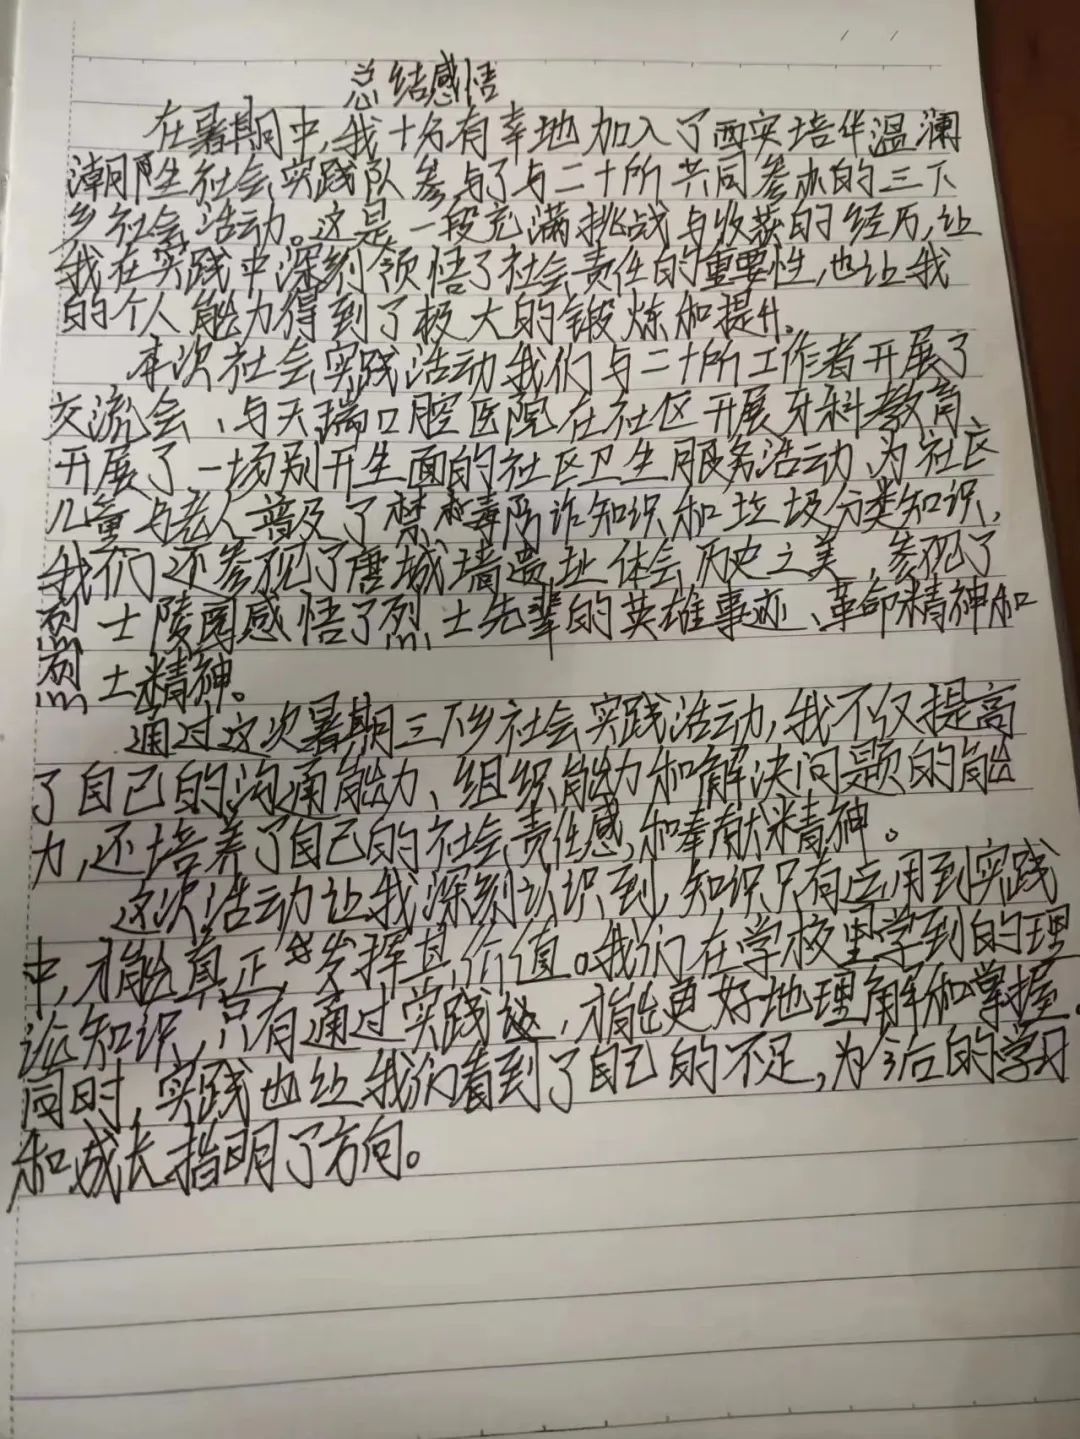 总结感悟
在暑期中,我十分有幸地加入了西安培华温澜
潮生社会实践队参与了与二十所共同参办的三下
乡社会活动。这是一段充满挑战与收获的经历,让
我在实践中深刻领悟了社会责任的重要性,也让我
的个人能力得到了极大的锻炼和提升。
本次社会实践活动我们与二十所工作者开展了
交流会、与天瑞口腔医院在社区开展牙科教育、
开展了一场别开生面的社区卫生服务活动、为社区
儿童与老人普及了禁毒防诈知识和垃圾分类知识,
我们还参观了唐城墙遗址体会历史之美,参观了
烈士陵园感悟了烈士先辈的英雄事迹、革命精神和
烈士精神。
通过这次暑期三下乡社会实践活动,我不仅提高
了自己的沟通能力、组织能力和解决问题的能
力,还培养了自己的社会责任感,和奉献精神。
这次活动让我深刻认识到,知识只有运用到实践
中,才能真正发挥其价值。我们在学校里学到的理
论知识,只有通过实践,才能更好地理解和掌握。
同时,实践也让我们看到了自己的不足,为今后的学习
和成长指明了方向。